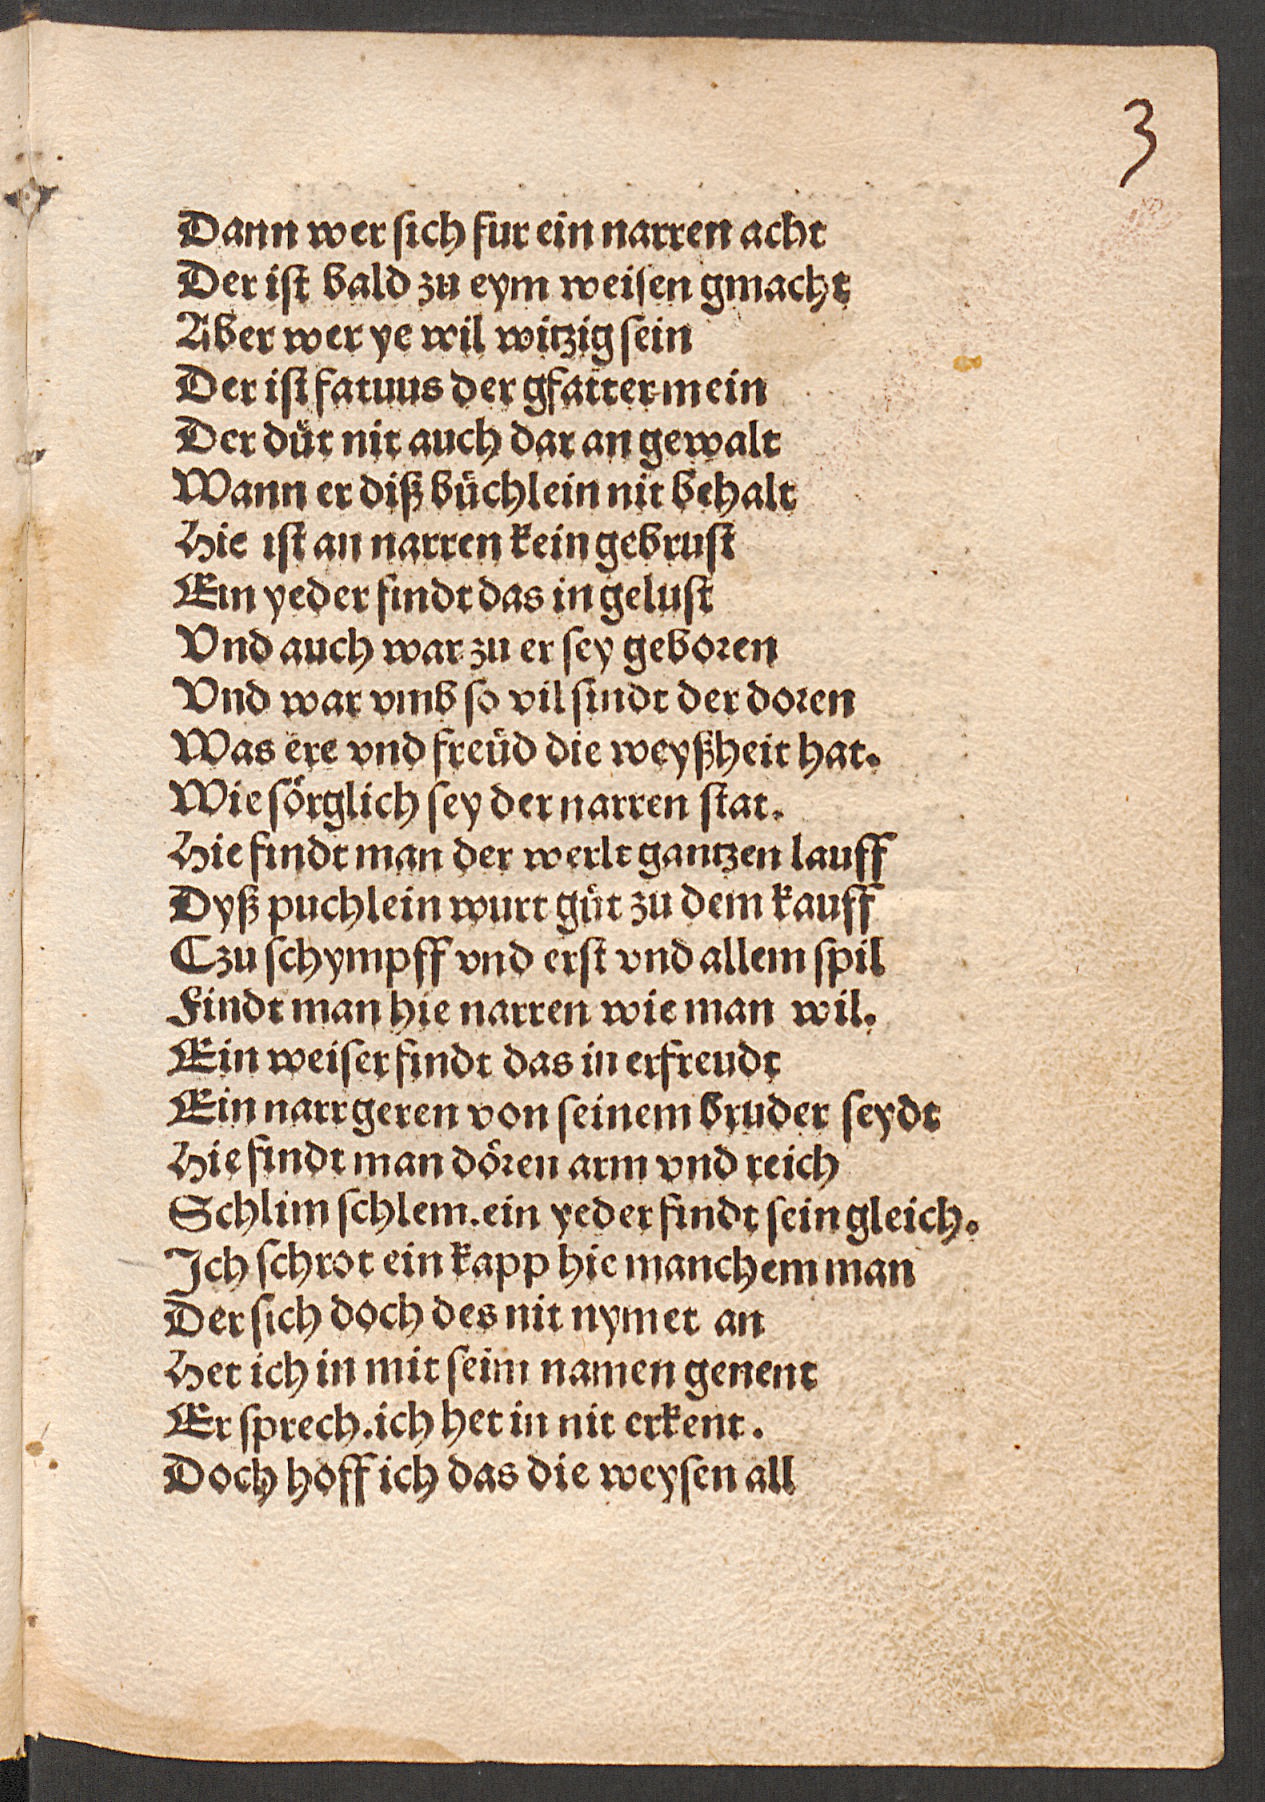 3
Dann wer sich fur ein narren acht
Der ist bald zu eym weisen gmacht
Aber wer ye wil witzig sein
Der ist fatuus der gfatter mein
Der düt nit auch dar an gewalt
Wann er diß büchlein nit behalt
Hie ist an narren kein gebrust
Ein yeder findt das in gelust
Vnd auch war zu er sey geboren
Vnd war vmb so vil sindt der doren
Was ere vnd freüd die weyßheit hat.
Wie sörglich sey der narren stat.
Hie findt man der werlt gantzen lauff
Dyß puchlein wurt güt zu dem kauff
Czu schympff vnd erst vnd allem spil
Findt man hie narren wie man wil.
Ein weiser findt das in erfreudt
Ein narr geren von seinem bruder seydt
Hie findt man dören arm vnd reich
Schlim schlem. ein yeder findt sein gleich.
Ich schrot ein kapp hie manchem man
Der sich doch des nit nymet an
Het ich in mit seim namen genent
Er sprech. ich het in nit erkent.
Doch hoff ich das die weysen all